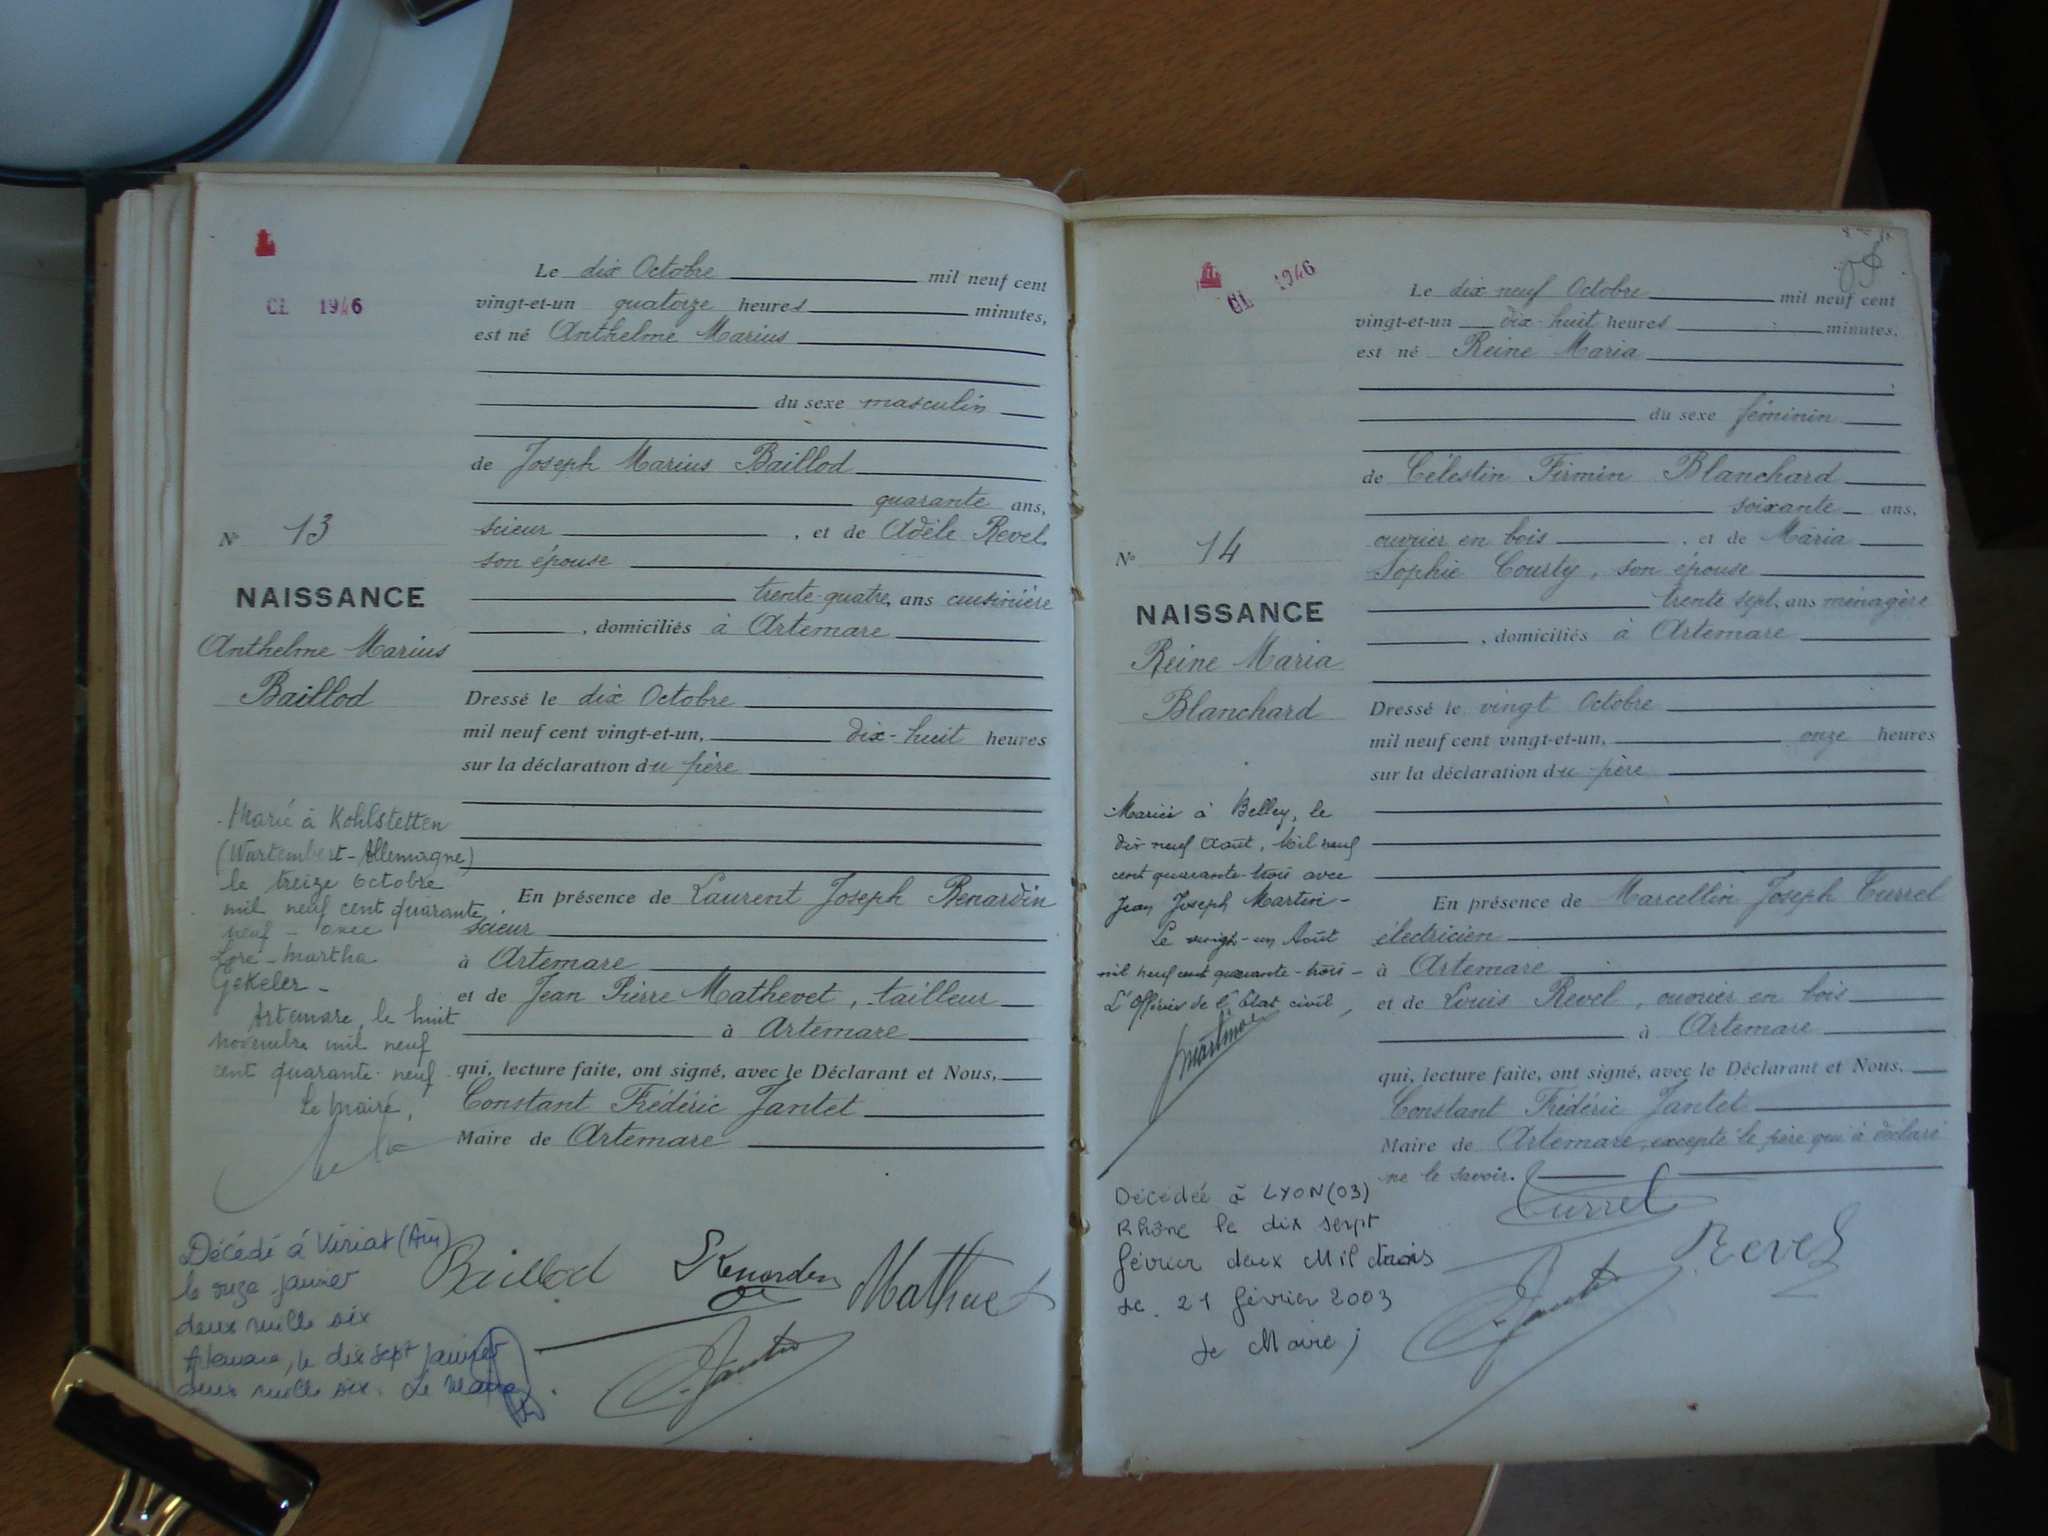 CL 1946
Le dix Octobre mil neuf cent
vingt-et-un quatorze heures minutes,
est né Anthelme Marius
du sexe masculin
de Joseph Marius Baillod
quarante ans,
scieur , et de Adèle Revel
son épouse
trente-quatre, ans cuisinière
, domiciliés à Artemare
Dressé le dix Octobre
mil neuf cent vingt-et-un, dix-huit heures
sur la déclaration du père
En présence de Laurent Joseph Renardin
scieur
à Artemare
et de Jean Pierre Mathevet, tailleur
à Artemare
qui, lecture faite, ont signé, avec le Déclarant et Nous,
Constant Frédéric Jantet
Maire de Artemare
N° 13
NAISSANCE
Anthelme Marius
Baillod
Marié à Kohlstetten
(Wurtembert-Allemagne)
le treize Octobre
mil neuf cent quarante
neuf - avec
Lore-Martha
Gekeler -
Artemare, le huit
novembre mil neuf
cent quarante-neuf
Le Maire,
Décédé à Viriat (Ain)
le janvier
deux mille six
Artemare, le dix sept janvier
deux mille six. Le Maire
Baillod
Mathevet
Jantet
CL 1946
Le dix neuf Octobre mil neuf cent
vingt-et-un dix-huit heures minutes,
est né Reine Maria
du sexe féminin
de Célestin Firmin Blanchard
soixante ans,
ouvrier en bois , et de Maria
Sophie Courty, son épouse
trente sept, ans ménagère
, domiciliés à Artemare
Dressé le vingt Octobre
mil neuf cent vingt-et-un, onze heures
sur la déclaration du père
En présence de Marcellin Joseph Currel
électricien
à Artemare
et de Louis Revel, ouvrier en bois
à Artemare
qui, lecture faite, ont signé, avec le Déclarant et Nous,
Constant Frédéric Jantet
Maire de Artemare, excepté le père qui a déclaré
ne le savoir.
N° 14
NAISSANCE
Reine Maria
Blanchard
Mariée à Belley, le
dix neuf Août, Mil neuf
cent quarante-trois avec
Jean Joseph Martin -
Le vingt-un Août
mil neuf cent quarante-trois -
L'Officier de l'Etat civil,
Décédée à LYON (03)
Rhône le dix sept
février deux Mil trois
Le 21 février 2003
Le Maire,
Currel
Revel
Jantet